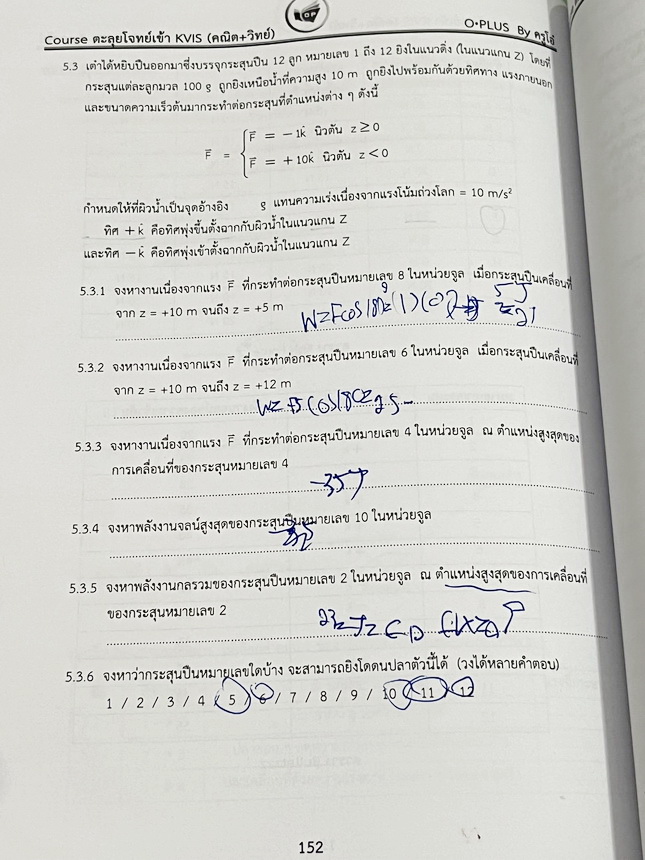 Course ตะลุยโจทย์เข้า KVIS (คณิต+วิทย์)
TOP
O•PLUS By ครูโอ๋
5.3 เต๋าได้หยิบปืนออกมาซึ่งบรรจุกระสุนปืน 12 ลูก หมายเลข 1 ถึง 12 ยิงในแนวดิ่ง (ในแนวแกน Z) โดยที่
กระสุนแต่ละลูกมวล 100 g ถูกยิงเหนือน้ำที่ความสูง 10 m ถูกยิงไปพร้อมกันด้วยทิศทาง แรงภายนอก
และขนาดความเร็วต้นมากระทำต่อกระสุนที่ตำแหน่งต่าง ๆ ดังนี้
F⃗ = { F⃗ = − 1k̂ นิวตัน z ≥ 0
F⃗ = + 10k̂ นิวตัน z < 0
กำหนดให้ที่ผิวน้ำเป็นจุดอ้างอิง g แทนความเร่งเนื่องจากแรงโน้มถ่วงโลก = 10 m/s²
ทิศ + k̂ คือทิศพุ่งขึ้นตั้งฉากกับผิวน้ำในแนวแกน Z
และทิศ − k̂ คือทิศพุ่งเข้าตั้งฉากกับผิวน้ำในแนวแกน Z
5.3.1 จงหางานเนื่องจากแรง F⃗ ที่กระทำต่อกระสุนปืนหมายเลข 8 ในหน่วยจูล เมื่อกระสุนปืนเคลื่อนที่
จาก z = +10 m จนถึง z = +5 m
5.3.2 จงหางานเนื่องจากแรง F⃗ ที่กระทำต่อกระสุนปืนหมายเลข 6 ในหน่วยจูล เมื่อกระสุนปืนเคลื่อนที่
จาก z = +10 m จนถึง z = +12 m
5.3.3 จงหางานเนื่องจากแรง F⃗ ที่กระทำต่อกระสุนปืนหมายเลข 4 ในหน่วยจูล ณ ตำแหน่งสูงสุดของ
การเคลื่อนที่ของกระสุนหมายเลข 4
5.3.4 จงหาพลังงานจลน์สูงสุดของกระสุนปืนหมายเลข 10 ในหน่วยจูล
5.3.5 จงหาพลังงานกลรวมของกระสุนปืนหมายเลข 2 ในหน่วยจูล ณ ตำแหน่งสูงสุดของการเคลื่อนที่
ของกระสุนหมายเลข 2
5.3.6 จงหาว่ากระสุนปืนหมายเลขใดบ้าง จะสามารถยิงโดดนปลาตัวนี้ได้ (วงได้หลายคำตอบ)
1 / 2 / 3 / 4 / 5 / 6 / 7 / 8 / 9 / 10 / 11 / 12
152